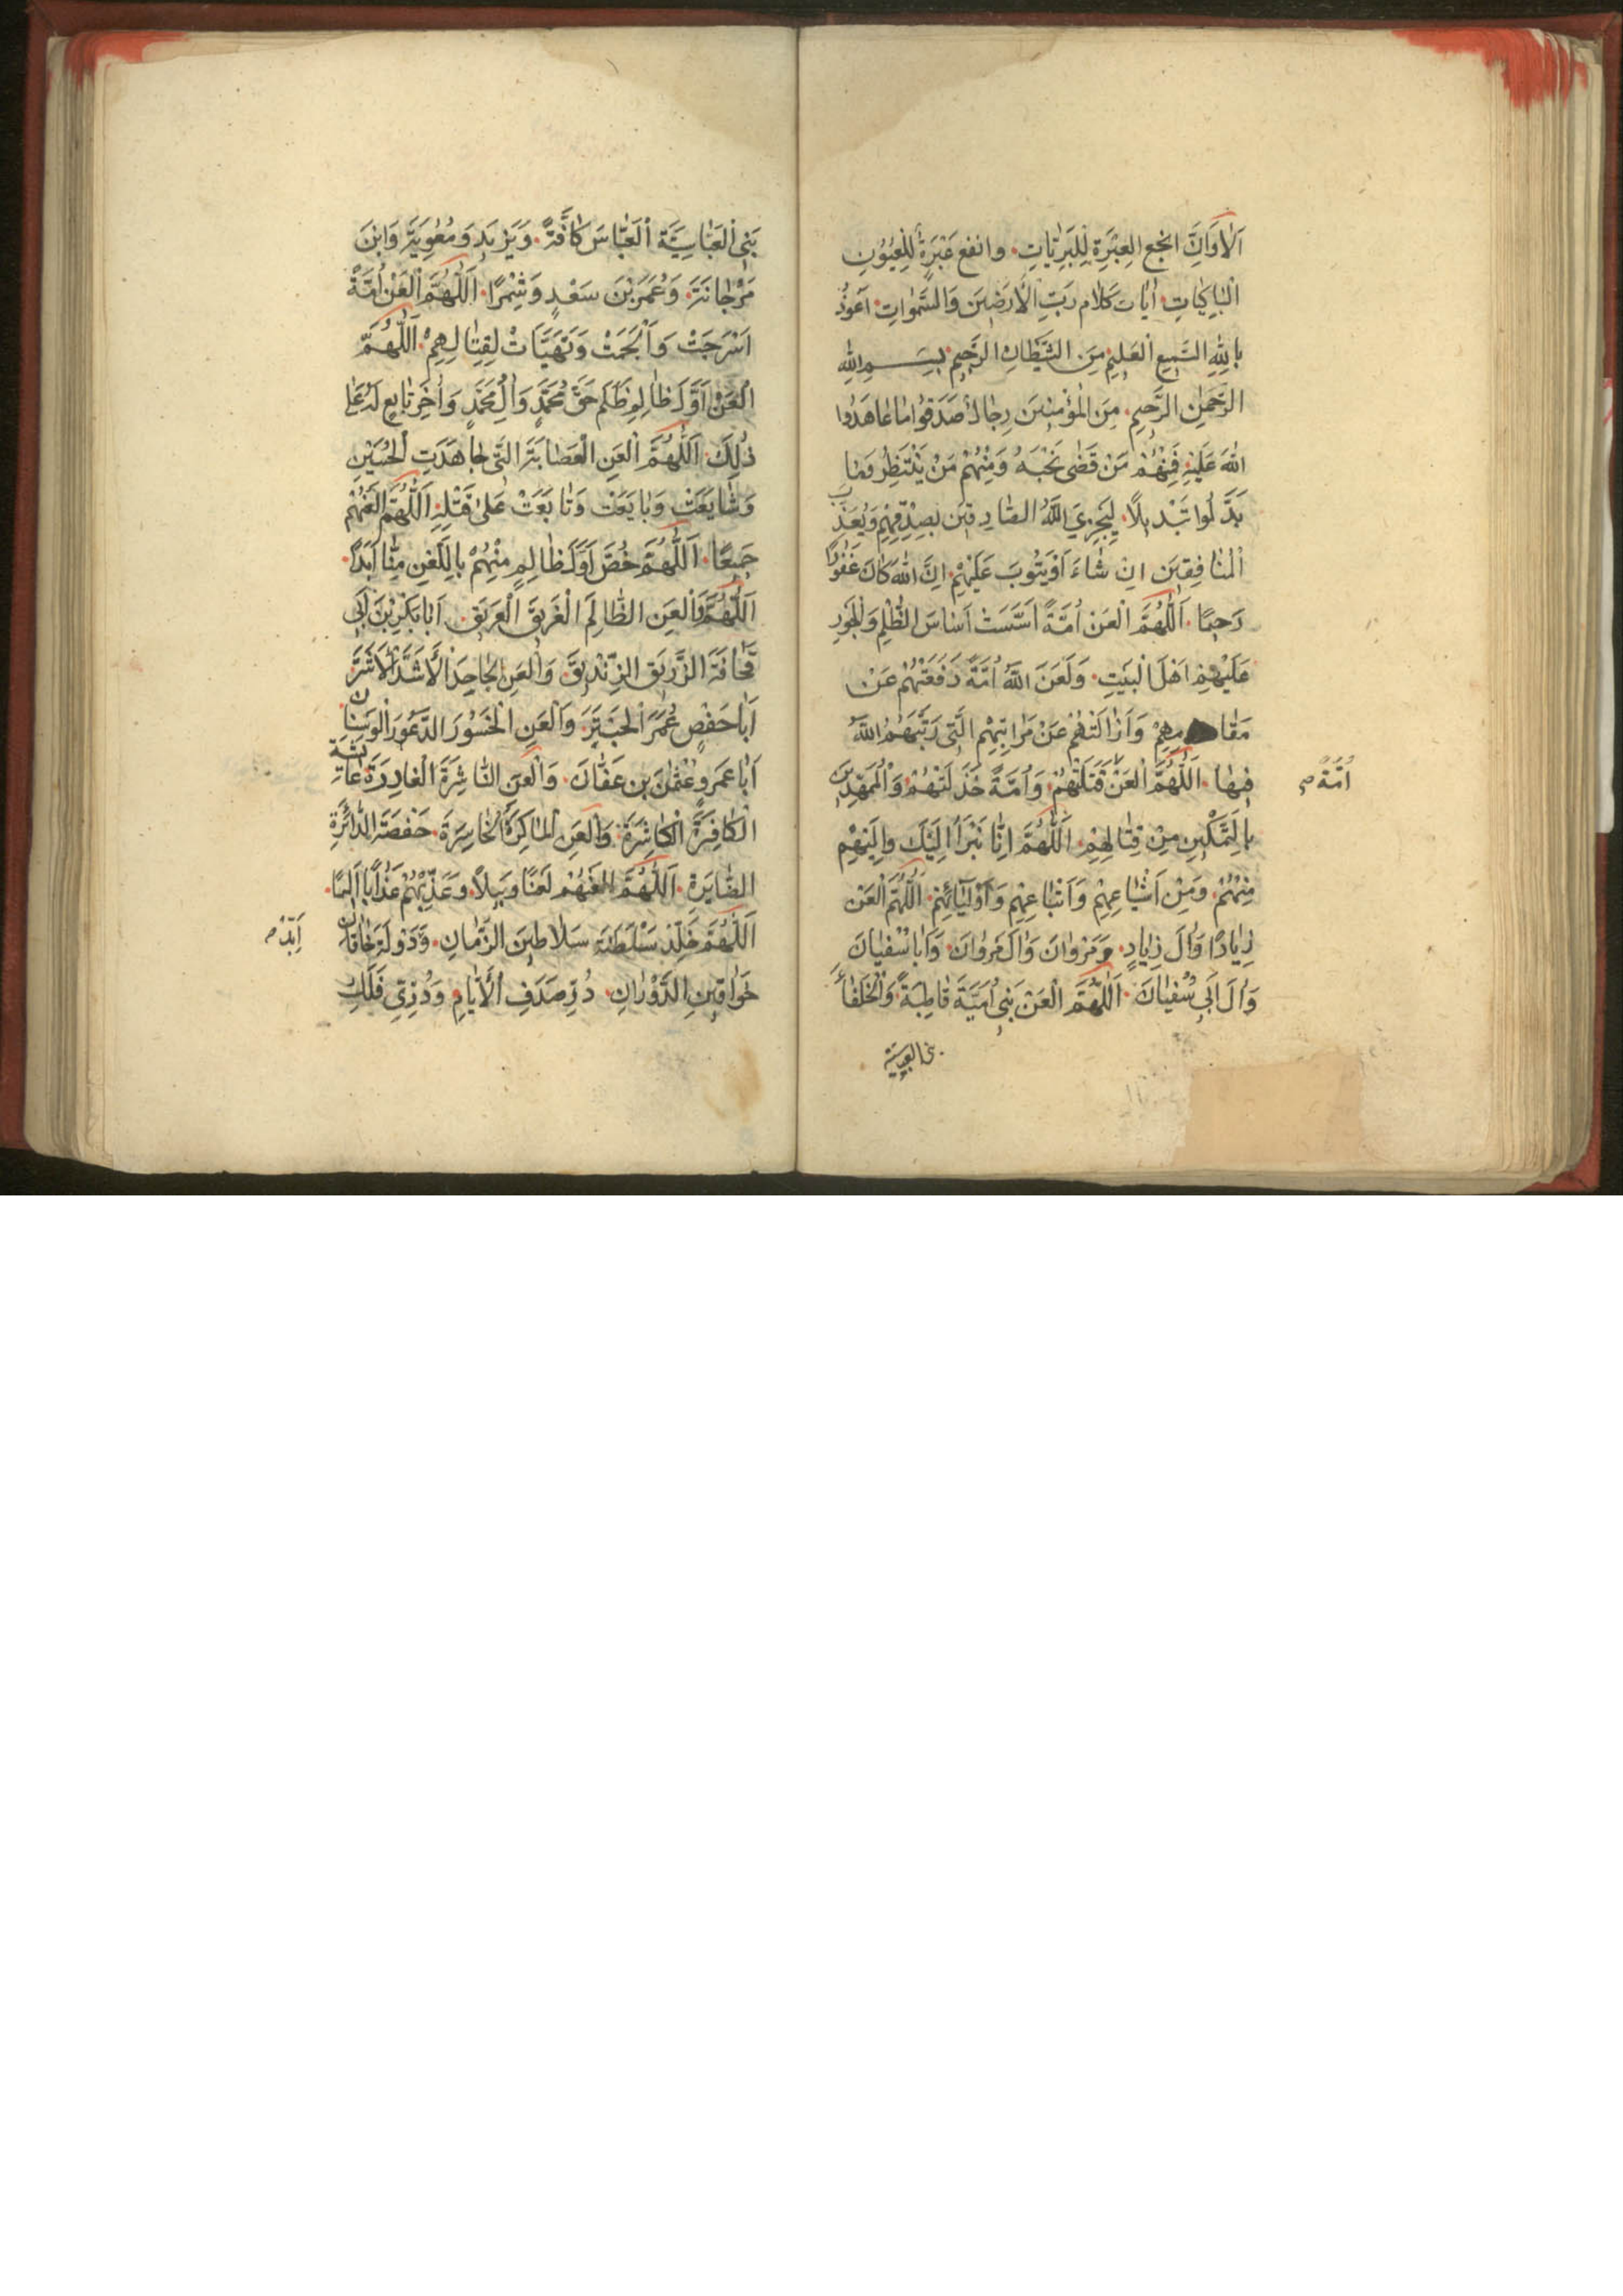 اَلْاَوَانَ انجع العِبْرَةِ لِلْبَرِيّاتِ. وانفع عَبْرَةٍ لِلْعُيُوُنِ
الْبٰاكِيٰاتِ. اٰيٰات كَلٰام رَبِّ الْاَرَضٖينَ وَالسَّمٰوٰاتِ. اَعوُذُ
بِاللّٰهِ السَّمٖيعِ الْعَلٖيمِ مِنَ الشَّيْطٰانِ الرَّجٖيمِ. بِسْمِ اللّٰهِ
الرَّحْمٰنِ الرَّحٖيمِ. مِنَ الْمُؤْمِنٖينَ رِجٰالٌ صَدَقُوا مٰا عٰاهَدُوا
اللّٰهَ عَلَيْهِ فَمِنْهُمْ مَنْ قَضٰى نَحْبَهُ وَمِنْهُمْ مَنْ يَنْتَظِرُ وَمٰا
بَدَّلُوا تَبْدٖيلًا. لِيَجْزِيَ اللّٰهُ الصّٰادِقٖينَ بِصِدْقِهِمْ وَيُعَذِّبَ
الْمُنٰافِقٖينَ اِنْ شٰاءَ اَوْ يَتُوبَ عَلَيْهِمْ. اِنَّ اللّٰهَ كٰانَ غَفُورًا
رَحٖيمًا. اَللّٰهُمَّ الْعَنْ اُمَّةً اَسَّسَتْ اَسٰاسَ الظُّلْمِ وَالْجَوْرِ
عَلَيْهِمْ اَهْلَ الْبَيْتِ. وَلَعَنَ اللّٰهُ اُمَّةً دَفَعَتْهُمْ عَنْ
مَقٰامِهِمْ وَاَزٰالَتْهُمْ عَنْ مَرٰاتِبِهِمِ الَّتٖى رَتَّبَهُمُ اللّٰهُ
فٖيهٰا. اَللّٰهُمَّ الْعَنْ قَتَلَتْهُمْ. وَاُمَّةً خَذَلَتْهُمْ وَالْمُمَهِّدٖينَ
اُمَّةً صح
بِالتَّمْكٖينِ مِنْ قِتٰالِهِمْ. اَللّٰهُمَّ اِنّٰا نَبْرَأُ اِلَيْكَ وَاِلَيْهِمْ
مِنْهُمْ. وَمِنْ اَشْيٰاعِهِمْ وَاَتْبٰاعِهِمْ وَاَوْلِيٰائِهِمْ. اَللّٰهُمَّ الْعَنْ
زِيٰادًا وَاٰلَ زِيٰادٍ. وَمَرْوٰانَ وَاٰلَ مَرْوٰانَ. وَاَبٰا سُفْيٰانَ
وَاٰلَ اَبٖى سُفْيٰانَ. اَللّٰهُمَّ الْعَنْ بَنٖى اُمَيَّةَ قٰاطِبَةً وَالْخُلَفٰاءَ
بنى العبسية
بَنٖى الْعَبّٰاسِيَّةِ الْعَبّٰاسَ كٰافَّةً. وَيَزٖيدَ وَمُعٰوِيَةَ وَابْنَ
مَرْجٰانَةَ. وَعُمَرَ بْنَ سَعْدٍ وَشِمْرًا. اَللّٰهُمَّ الْعَنْ اُمَّةً
اَسْرَجَتْ وَاَلْجَمَتْ وَتَهَيَّأَتْ لِقِتٰالِهِمْ. اَللّٰهُمَّ
الْعَنْ اَوَّلَ ظٰالِمٍ ظَلَمَ حَقَّ مُحَمَّدٍ وَاٰلِ مُحَمَّدٍ وَاٰخِرَ تٰابِعٍ لَهُ عَلٰى
ذٰلِكَ. اَللّٰهُمَّ الْعَنِ الْعِصٰابَةَ الَّتٖى جٰاهَدَتِ الْحُسَيْنِ
وَشٰايَعَتْ وَبٰايَعَتْ وَتٰابَعَتْ عَلٰى قَتْلِهِ. اَللّٰهُمَّ الْعَنْهُمْ
جَمٖيعًا. اَللّٰهُمَّ خُصَّ اَوَّلَ ظٰالِمٍ مِنْهُمْ بِاللَّعْنِ مِنّٰا اَبَدًا.
اَللّٰهُمَّ وَالْعَنِ الظّٰالِمَ الْغَرٖيقَ الْعَرٖيقَ. اَبٰا بَكْرِ بْنَ اَبٖى
قُحٰافَةَ الزُّرَيْقَ الزِّنْدٖيقَ. وَالْعَنِ الْجٰاحِدَ الْاَشَدَّ الْاَشَرَّ
اَبٰا حَفْصٍ عُمَرَ الْحَبْتَرَ. وَالْعَنِ الْخَسُورَ الدَّعُورَ الْوَسْنٰانَ
اَبٰا عَمَرٍو عُثْمٰنَ بن عَفّٰانَ. وَالْعَنِ النّٰاشِزَةَ الْغٰادِرَةَ عٰائِشَةَ
الْكٰافِرَةَ الْكٰاشِرَةَ. وَالْعَنِ الْمٰاكِرَةَ الْخٰاسِرَةَ. حَفْصَةَ الدّٰائِرَةِ
الصّٰايِرَة. اَللّٰهُمَّ الْعَنْهُمْ لَعْنًا وَبٖيلًا. وَعَذِّبْهُمْ عَذٰابًا اَلٖيمًا.
اَللّٰهُمَّ خَلِّدْ سَلْطَنَةَ سَلٰاطٖينَ الزَّمٰانِ. وَدَوْلَةَ خٰاقٰانِ
اَبِّدْ صح
خَوٰاقٖينِ الدَّوْرٰانِ. دُرِّ صَدَفِ الْاَيّٰامِ وَدُرِّىِّ فَلَكِ